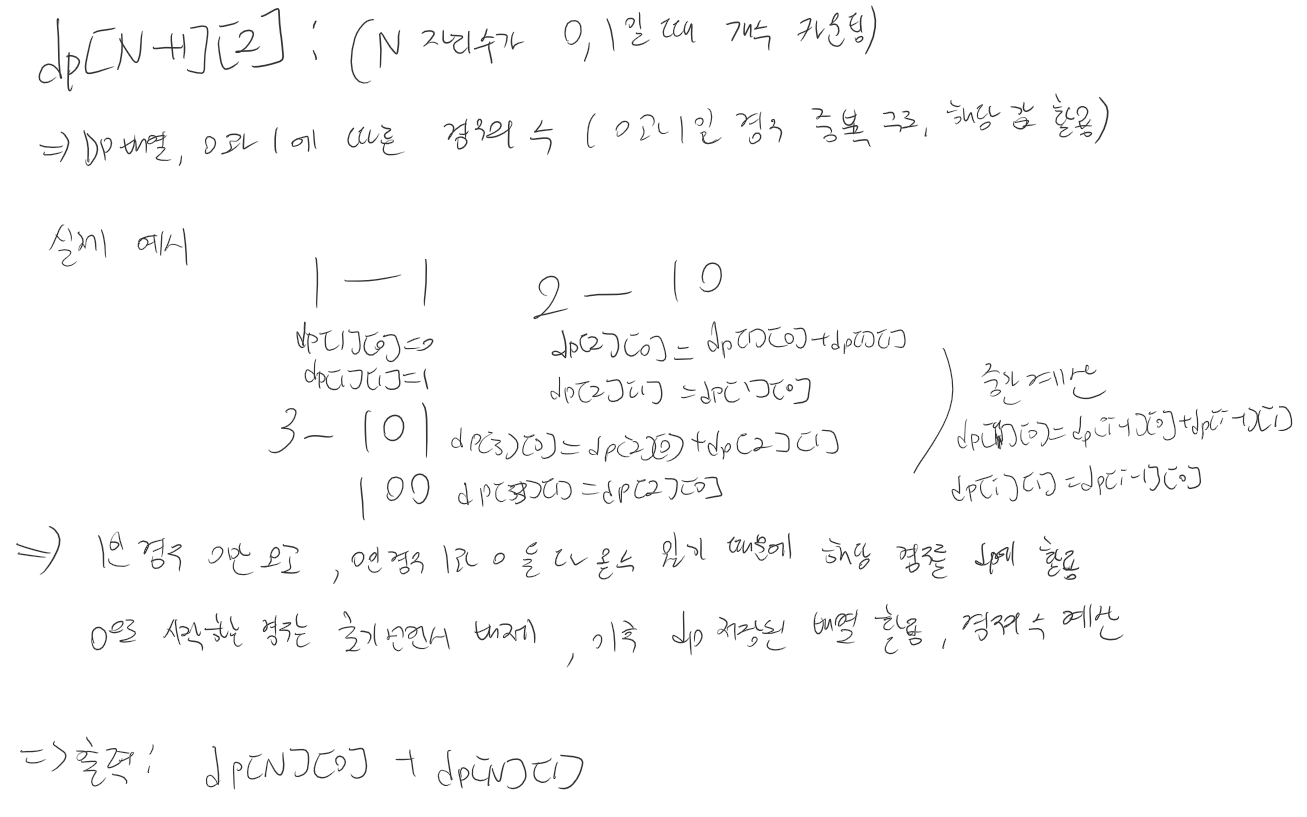 dp[N+1][2] : (N 자리수가 0,1일 때 개수 카운팅)
=> DP 배열, 0과 1에 따른 경우의 수 (0과 1일 경우 중복 구조, 해당 값 활용)
실제 예시
1 — 1 2 — 10
dp[1][0]=0 dp[2][0] = dp[1][0]+dp[1][1]
dp[1][1]=1 dp[2][1] = dp[1][0]
3 — 101 dp[3][0] = dp[2][0] + dp[2][1]
100 dp[3][1] = dp[2][0]
중간 계산
dp[i][0]=dp[i-1][0]+dp[i-1][1]
dp[i][1]=dp[i-1][0]
=> 1인 경우 0만 오고, 0인 경우 1과 0 둘 다 올 수 있기 때문에 해당 경우를 dp에 활용
0으로 시작하는 경우는 초기 선언서 배제, 이후 dp 저장된 배열 활용, 경우의 수 계산
=> 출력: dp[N][0] + dp[N][1]